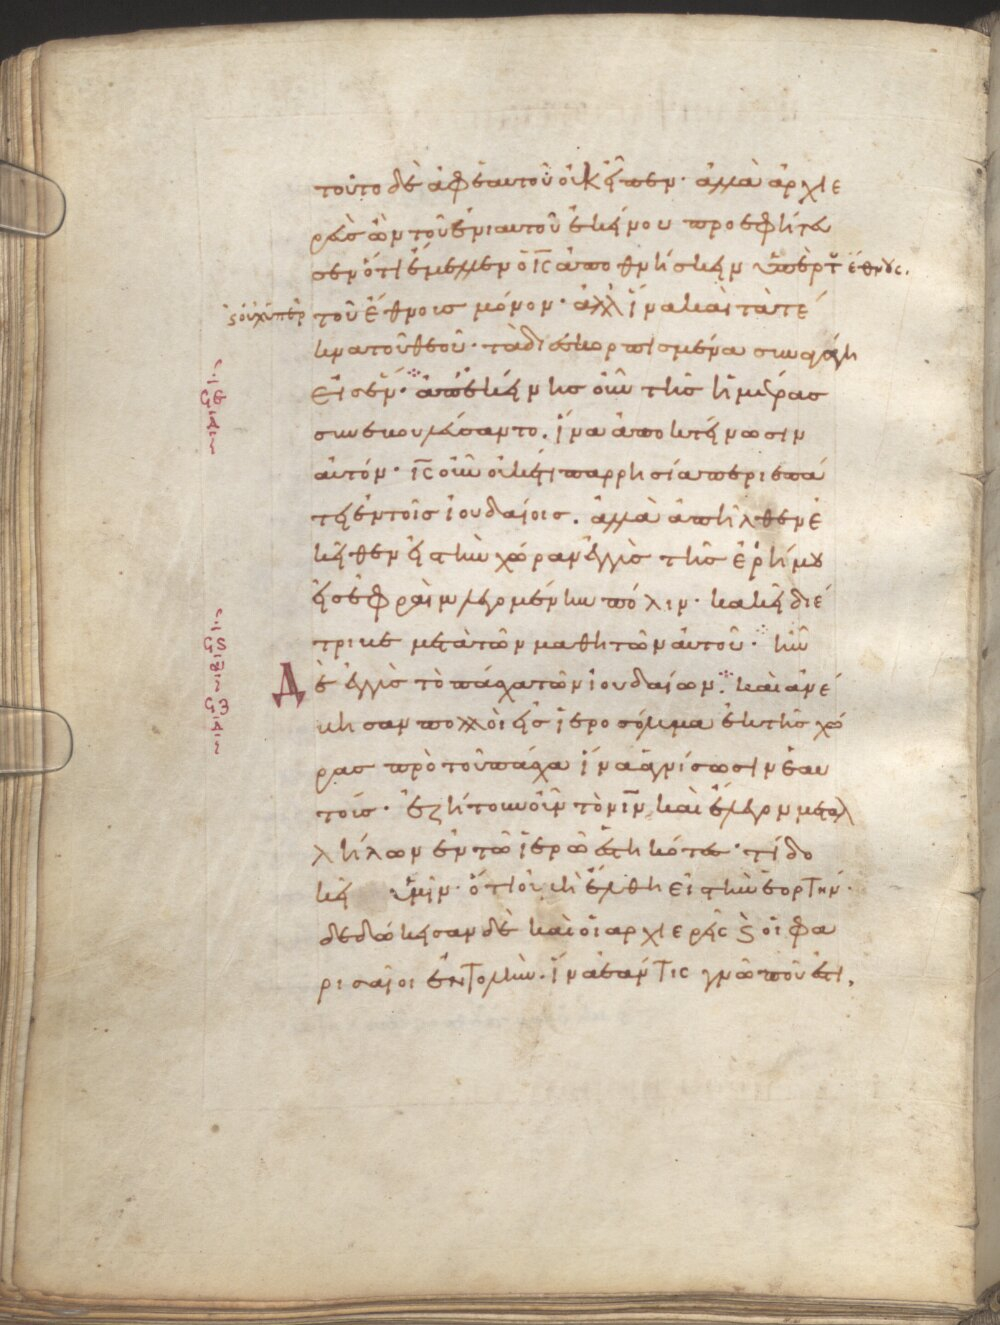 τοῦτο δὲ ἀφ ἑαυτοῦ οὐκ εἶπεν· ἀλλὰ ἀρχιε
ρεὺς ὢν τοῦ ἐνιαυτοῦ ἐκείνου προεφήτευ
σεν ὅτι ἔμελλεν ὁ ἰς ἀποθνήσκειν ὑπὲρ τ ἔθνους.
ϛ οὐχ ὑπὲρ τοῦ ἔθνους μόνον· ἀλλ ἵνα καὶ τὰ τέ
κνα τοῦ θεοῦ· τὰ διεσκορπισμένα συναγάγη
εἰς ἕν· ἀπ ἐκείνης οὖν τῆς ἡμέρας
συνεβουλεύσαντο. ἵνα ἀποκτείνωσιν
αὐτόν· ἰς οὖν οὐκέτι παρρησία περιεπά
τει ἐν τοῖς ἰουδαίοις. ἀλλὰ ἀπῆλθεν ἐ
κεῖθεν εἰς τὴν χώραν ἐγγὺς τῆς ἐρήμου
εἰς ἐφραὶμ λεγομένην πόλιν· κακεῖ διέ
τριβε μετὰ τῶν μαθητῶν αὐτοῦ· ἦν
Δ
ὲ ἐγγὺς τὸ πάσχα τῶν ἰουδαίων. καὶ ἀνέ
βησαν πολλοὶ εἰς ἱεροσόλυμα ἐκ τῆς χώ
ρας πρὸ τοῦ πάσχα ἵνα ἁγνίσωσιν ἑαυ
τούς· ἐζήτουν οὖν τὸν ἰν καὶ ἔλεγον μεταλ
λήλων ἐν τῶ ἱερῶ ἑστηκότες· τί δο
κεῖ ὑμῖν· ὅτι οὐ μὴ ἔλθη εἰς τὴν ἑορτήν·
δεδώκεισαν δὲ καὶ οἱ ἀρχιερεῖς ϛ οἱ φα
ρισαῖοι ἐντολὴν. ἵνα ἐάν τις γνῶ ποῦ ἐστι.